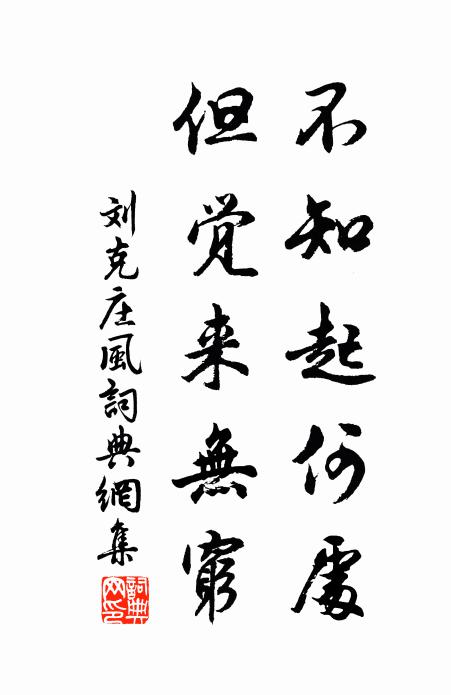 不知起何處
但覚来無窮
刘克庄風詞典網集
詞典網印